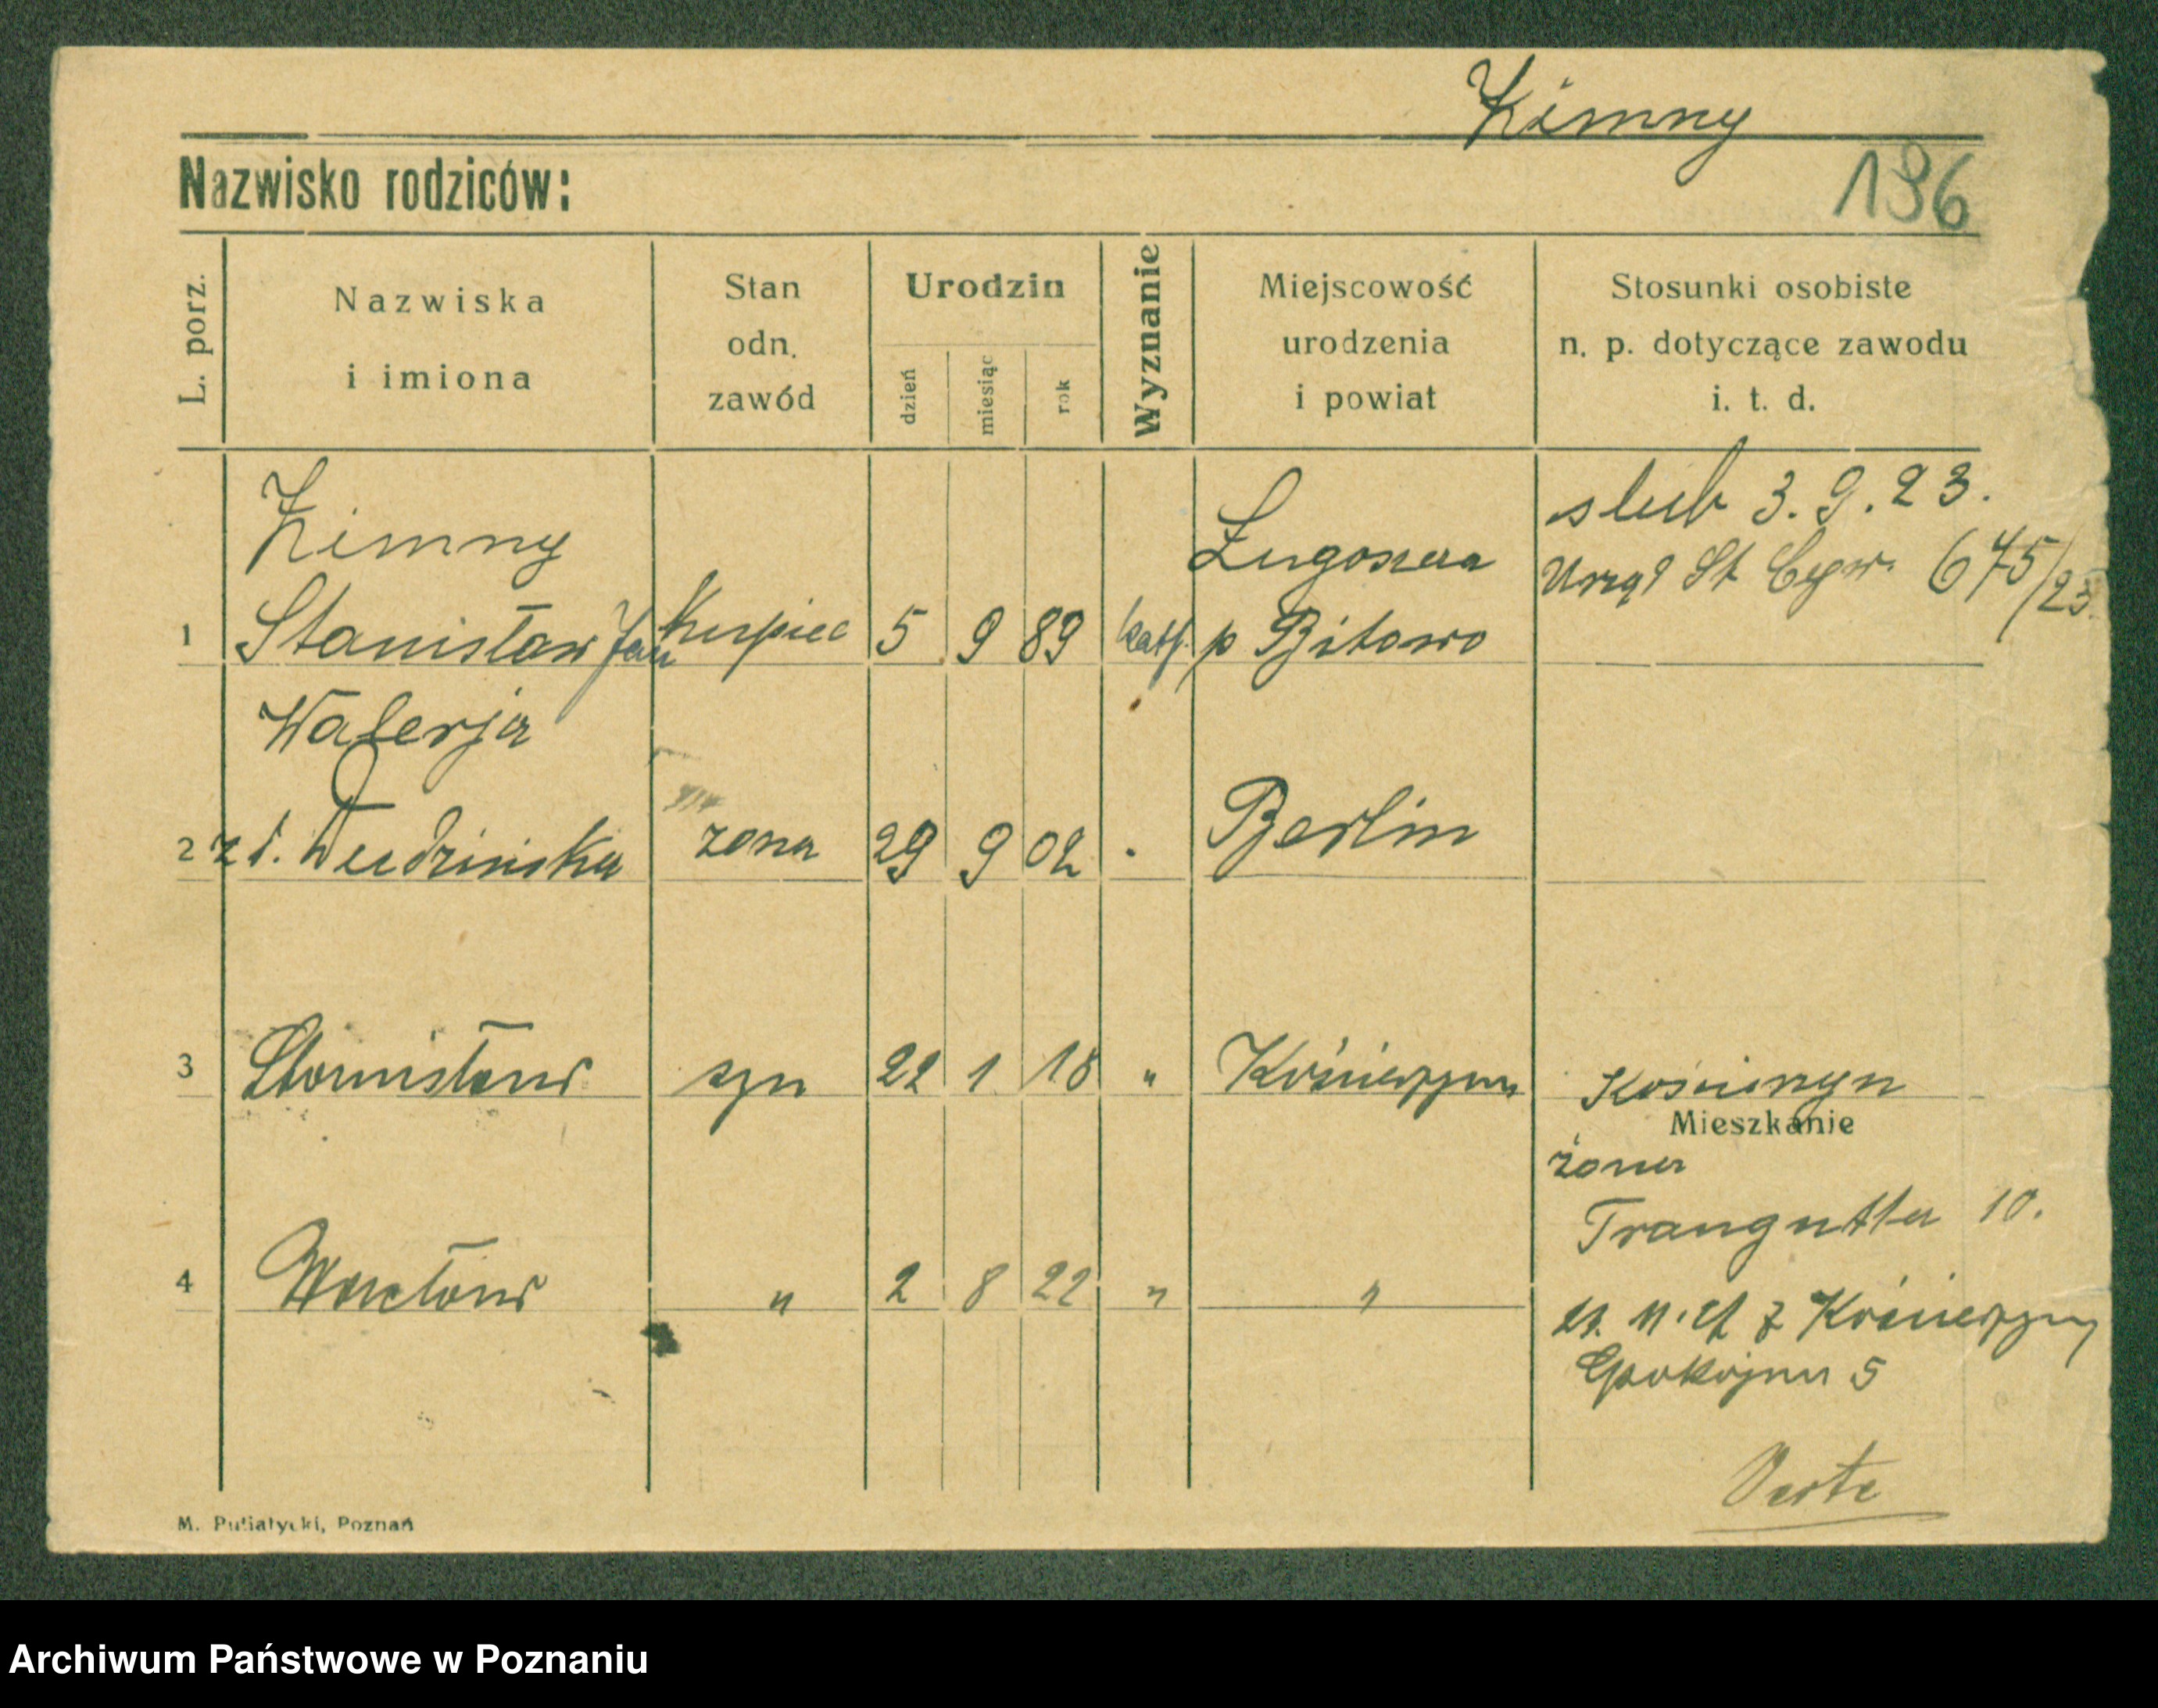 Zimny
Nazwisko rodziców:
196
L. porz.
Nazwiska
i imiona
Stan
odn.
zawód
Urodzin
dzień
miesiąc
rok
Wyznanie
Miejscowość
urodzenia
i powiat
Stosunki osobiste
n. p. dotyczące zawodu
i. t. d.
1
Zimny
Stanisław Jan
Kupiec
5 9 89
kath.
p Bitowo
slub 3.9.23.
Urząd St Cyw. 675/23
2
Walerja
z d.
zona
29 9 02
Berlin
3
Stanisław
syn
22 1 18
"
Mieszkanie
żona
Traugutta 10.
4
Wacław
"
2 8 22
"
"
Spokojna 5
Verte
M. Putiatycki, Poznań
Archiwum Państwowe w Poznaniu